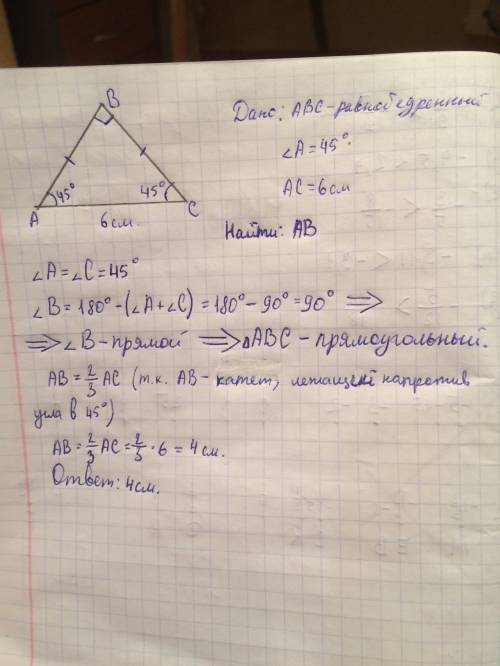 B
Дано: ABC-равнобедренный
∠A=45°.
AC=6см
45° 45°
A C
6см.
Найти: AB
∠A=∠C=45°
∠B=180°-(∠A+∠C)=180°-90°=90° ⟹
⟹∠B-прямой ⟹△ABC-прямоугольный.
AB=2/3 AC (т.к. AB-катет, лежащий напротив
угла в 45°)
AB=2/3 AC=2/3·6=4см.
Ответ: 4см.